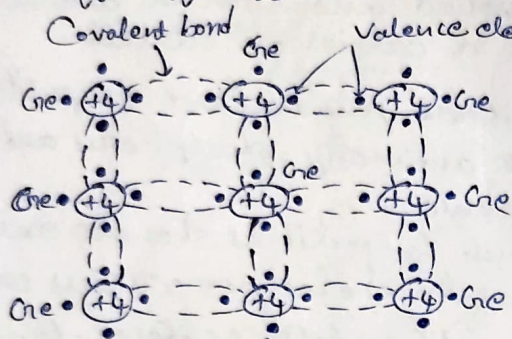 Covalent bond Ge Valence ele
Ge +4 +4 +4 Ge
Ge
Ge +4 +4 +4 Ge
Ge +4 +4 +4 Ge